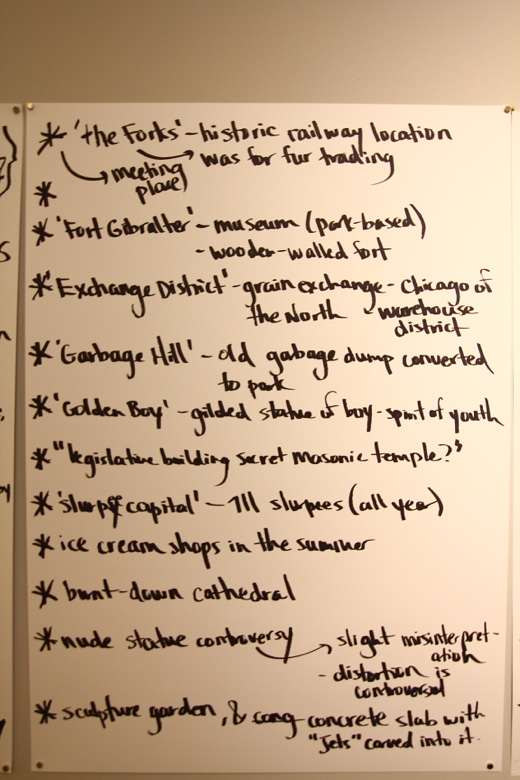 * 'the Forks' - historic railway location
was for fur trading
meeting
place
*
* 'Fort Gibralter' - museum (park-based)
- wooden-walled fort
* 'Exchange District' - grain exchange - Chicago of
the North - warehouse
district
* 'Garbage Hill' - old garbage dump converted
to park
* 'Golden Boy' - gilded statue of boy - spirit of youth
* "legislative building secret masonic temple?"
* 'slurpee capital' - 711 slurpees (all year)
* ice cream shops in the summer
* burnt-down cathedral
* nude statue controversy
slight misinterpret-
ation
- distortion is
controversial
* sculpture garden, & concrete slab with
"Jets" carved into it.